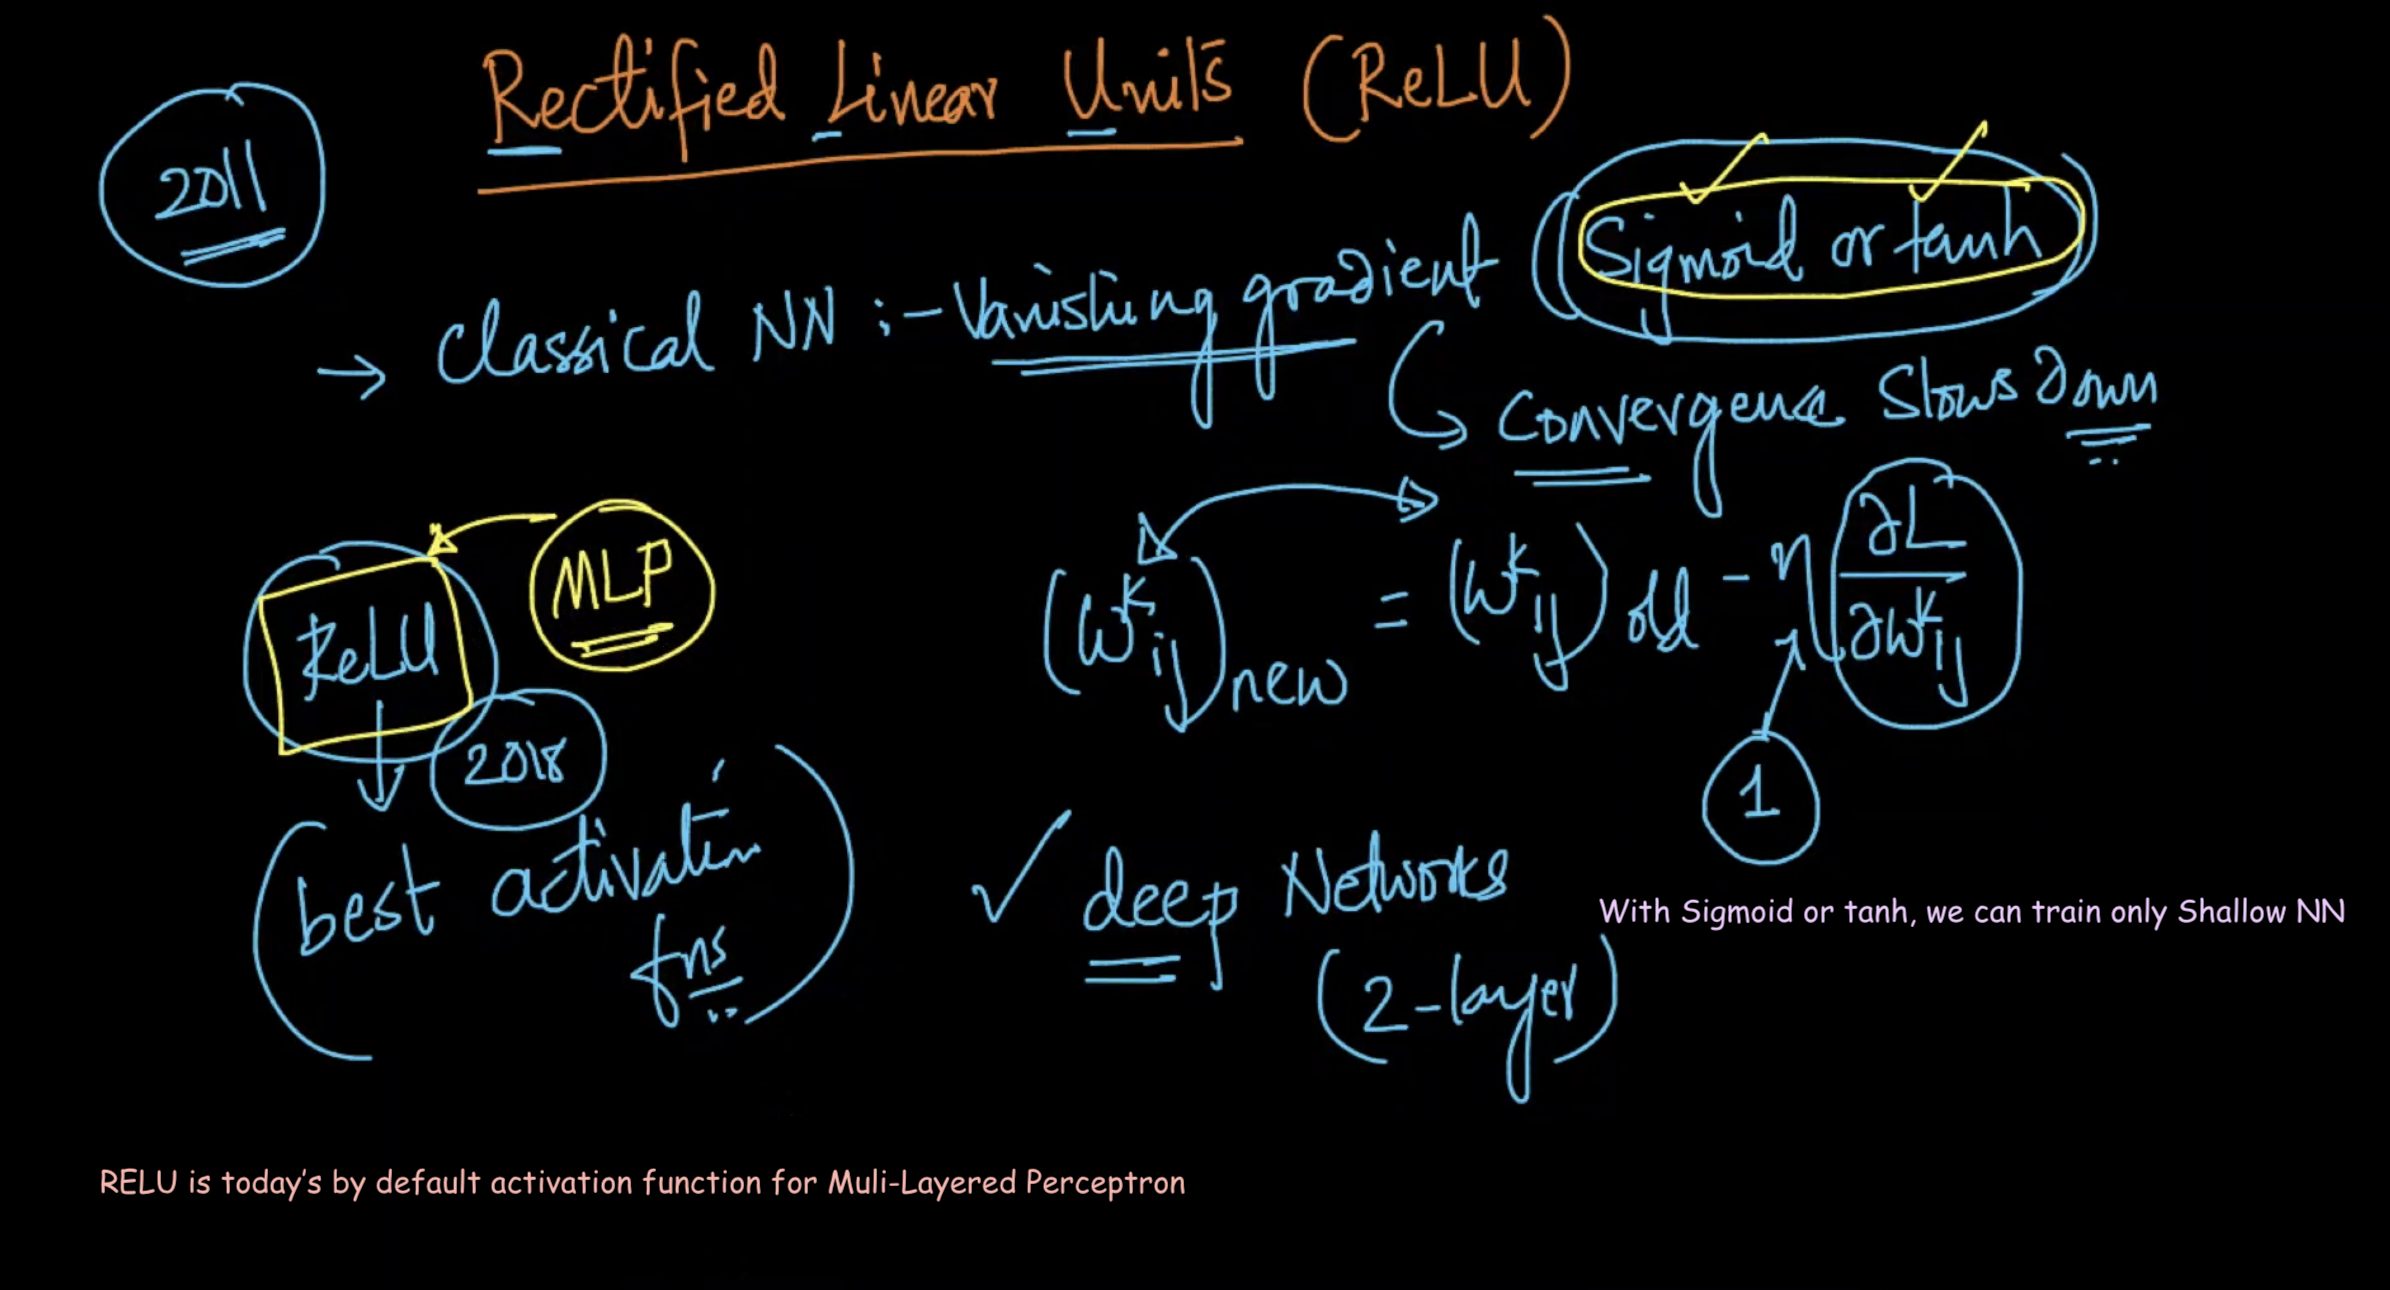 Rectified Linear Units (ReLU)
2011
→ Classical NN :- Vanishing gradient (Sigmoid or tanh)
Convergence Slows Down
MLP
ReLU
(w^k_ij)new = (w^k_ij)old - η ∂L/∂w^k_ij
2018
1
(best activation fns)
✓ deep Networks
(2-layer)
With Sigmoid or tanh, we can train only Shallow NN
RELU is today's by default activation function for Muli-Layered Perceptron